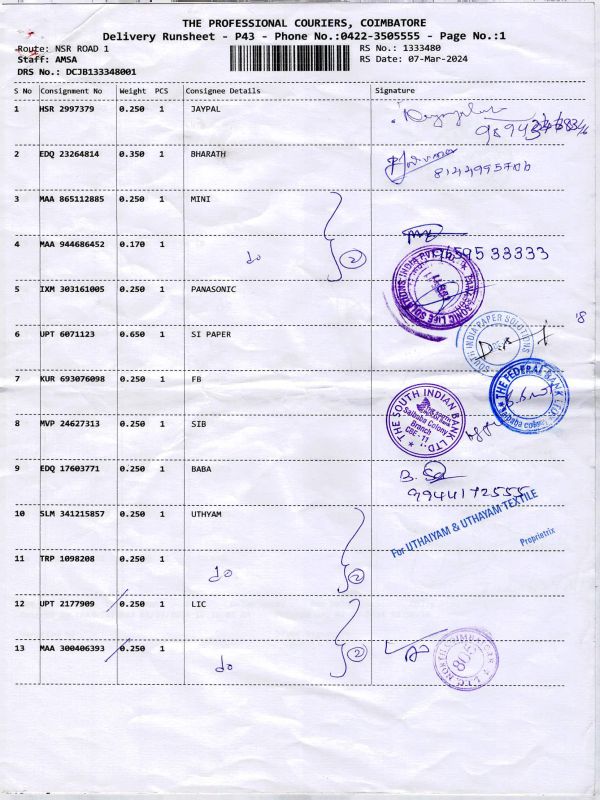 THE PROFESSIONAL COURIERS, COIMBATORE
Delivery Runsheet - P43 - Phone No.:0422-3505555 - Page No.:1
Route: NSR ROAD 1
RS No.: 1333480
Staff: AMSA
RS Date: 07-Mar-2024
DRS No.: DCJB133348001
S No Consignment No Weight PCS Consignee Details Signature
1 HSR 2997379 0.250 1 JAYPAL
2 EDQ 23264814 0.350 1 BHARATH
3 MAA 865112885 0.250 1 MINI
4 MAA 944686452 0.170 1 do 2
5 IXM 303161005 0.250 1 PANASONIC
6 UPT 6071123 0.650 1 SI PAPER
SOUTH INDIA PAPER SOLUTIONS
7 KUR 693076098 0.250 1 FB
THE FEDERAL BANK
8 MVP 24627313 0.250 1 SIB
THE SOUTH INDIAN BANK LTD.
Saibaba Colony
Branch
CBE - 11
9 EDQ 17603771 0.250 1 BABA
9944172555
10 SLM 341215857 0.250 1 UTHYAM
For UTHAIYAM & UTHAYAM TEXTILE
Proprietrix
11 TRP 1098208 0.250 1 do 2
12 UPT 2177909 0.250 1 LIC
13 MAA 300406393 0.250 1 do 2